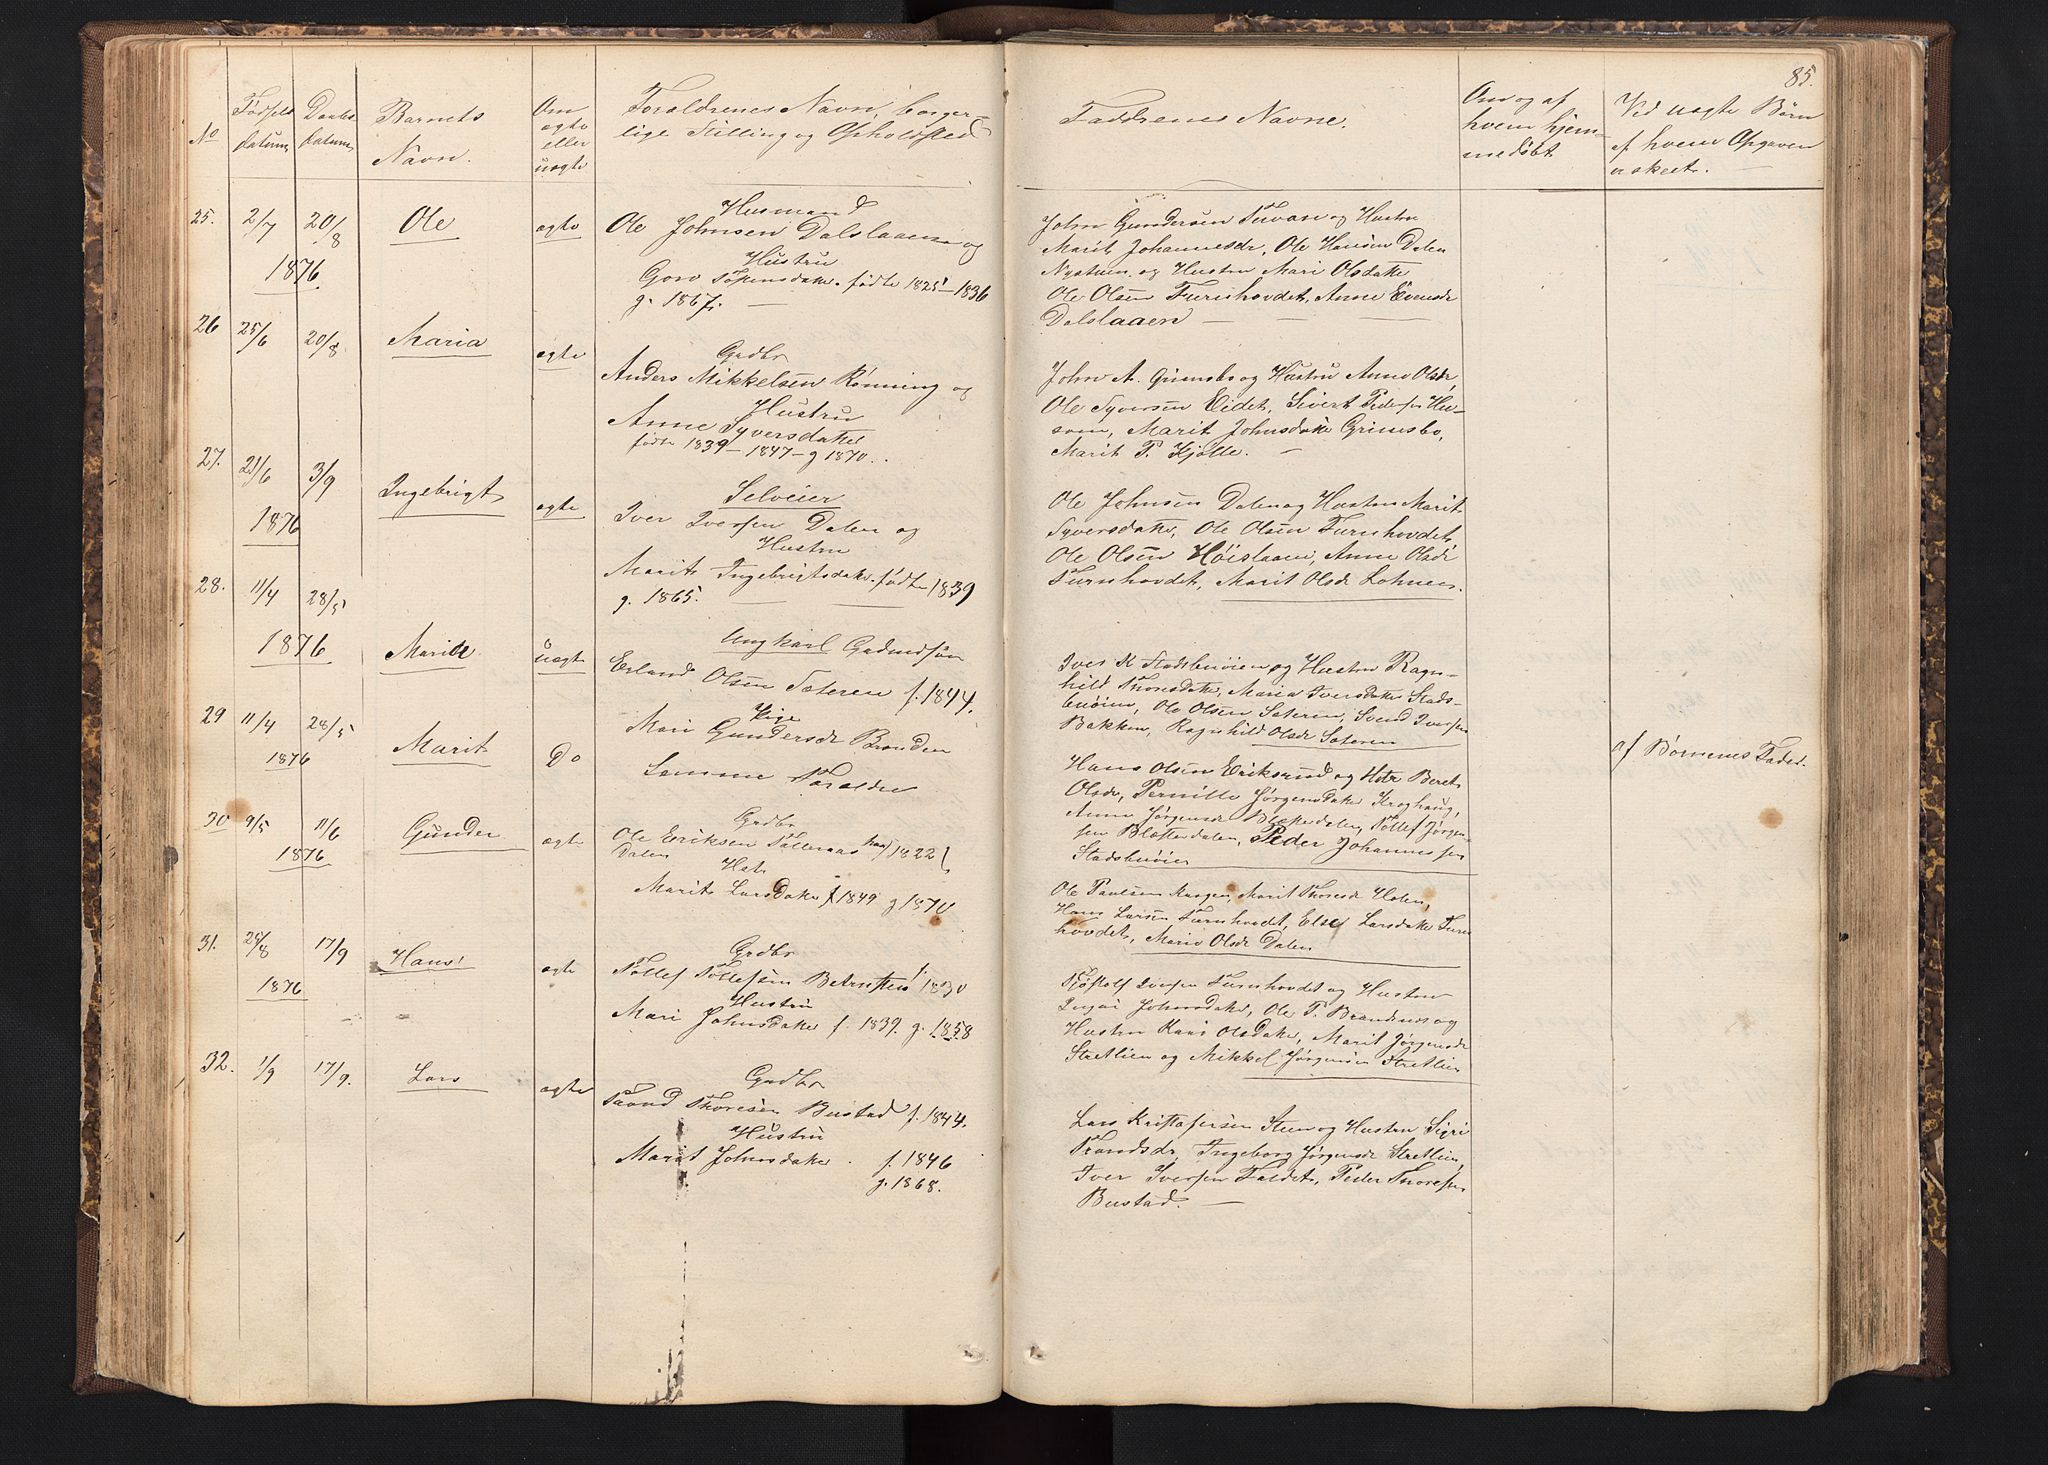 85.
No
Fødsels
datum
Daabs
datum
Barnets
Navn.
Om
ægte
eller
uægte
Forældrenes Navn, borger-
lige Stilling og Opholdsted
Faddrenes Navne.
Om og af
hvem hjem-
medøbt
Ved uægte Børn
af hvem Opgaven
er skeet.
25.
2/7
20/8
1876
Ole
ægte
Husmand
Ole Johnsen Dalslaaen og
Hustru
Goro datter. fødte 1825 - 1836
g. 1867.
John Gundersen og Hustru
Marit Johannesdr, Ole Hansen Dalen
Nystuen og Hustru Mari Olsdatter
Ole Olsen Furuhovdet, Anne
Dalslaaen
26
25/6
20/8
Maria
ægte
Grdbr
Anders Mikkelsen Rønning og
Hustru
Anne Syversdatter
fødte 1839 - 1847 - g 1870.
John A. Grimsbo og Hustru Anne Olsdr,
Ole Syversen Eidet, Sivert Pedersen Hu-
som, Marit Johnsdatter Grimsbo,
Marit P. Kjølle.
27.
21/6
3/9
1876
Ingebrigt
ægte
Selveier
Iver Iversen Dalen og
Hustru
Marit Ingebrigtsdatter. fødte 1839
g. 1865.
Ole Johnsen Dalen og Hustru Marit
Syversdatter, Ole Olsen Furuhovdet,
Ole Olsen Høislaaen, Anne Olsdr
Furuhovdet, Marit Olsdr Lohnes.
28.
11/4
28/5
1876
Marie
uægte
Ungkarl Gaardmandssøn
Erland Olsen Sæteren f. 1844.
Pige
Mari Gundersdr Brænden
Iver K Stadsbuøien og Hustru Ragn-
hild Thoresdatter, Maria Iversdatter Stads-
buøien, Ole Olsen Sæteren, Svend Iversen
Bakken, Ragnhild Olsdr Sæteren
29
11/4
28/5
1876
Marit
Do
Samme Forældre
Hans Olsen Eriksrud og Hstr Berit
Olsdr, Pernille Jørgensdatter Kroghaug,
Anne Jørgensdr Blæsterdalen, Tollef Jørgen-
sen Blæsterdalen, Peder Johannessen
Stadsbuøien
af Børnenes Fader.
30
9/5
11/6
1876
Gunder
ægte
Grdbr
Ole Eriksen 1822
Dalen
Hstr
Marit Larsdatter f 1849 g 1870
Ole Paulsen Krogen, Marit Thoresdr Holen,
Hans Larsen Furuhovdet, Else Larsdatter Furu
hovdet, Marie Olsdr Dalen
31.
24/8
17/9
1876
Hans
ægte
Grdbr
Tollef Tollefsen f. 1830
Hustru
Mari Johnsdatter f. 1839. g. 1858
Iversen Furuhovdet og Hustru
Johnsdatter, Ole T. Brændmo og
Hustru Kari Olsdatter, Marit Jørgensdr
Stretlien og Mikkel Jørgensen Stretlien
32.
1/9
17/9.
Lars
ægte
Grdbr
Thoresen Bustad f. 1844.
Hustru
Marit Johnsdatter. f. 1846
g. 1868.
Lars Kristofersen Steen og Hustru Sigri
Trondsdr, Ingeborg Jørgensdr Stretlien,
Iver Iversen Faldet, Peder Thoresen
Bustad.